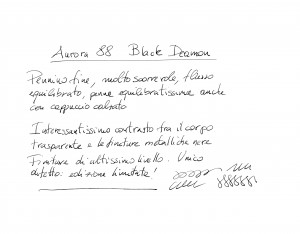 Aurora 88 Black Deamon
Pennino fine, molto scorrevole, flusso
equilibrato, penna equilibratissima anche
con cappuccio calzato
Interessantissimo contrasto tra il corpo
trasparente e le finiture metalliche nere
Finiture di altissimo livello. Unico
difetto: edizione limitata!